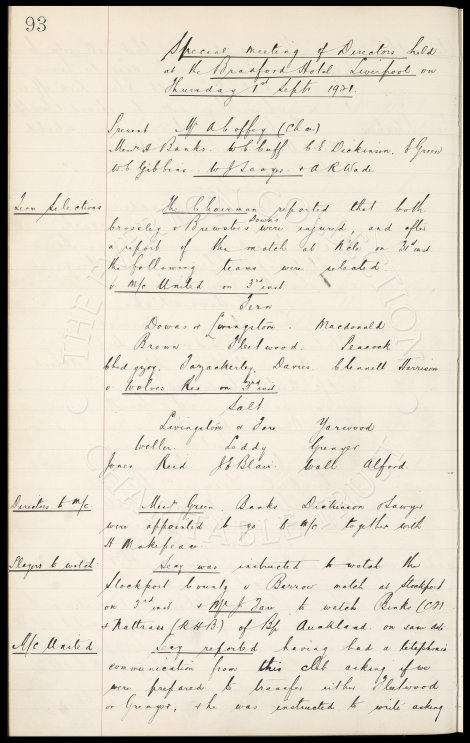 93
Special meeting of Directors held
at the Bradford Hotel Liverpool on
Thursday 1st Sept 1921.
Present Mr A Coffey (Chair)
Messrs A Banks. W C Cuff. C E Dickinson. E Green
W C Gibbins. W J Sawyer. & A R Wade.
Team Selections
The Chairman reported that both
Crossley & Brewster were injured, and after
Downs
a report of the match at on 31st inst
the following teams were selected
v M/c United on 3rd inst
Fern
Downs & Livingstone. Macdonald
Brown Fleetwood. Peacock
Chedgzoy. Fazackerley. Davies. Clennell Harrison
v Wolves Res on 3rd inst
Salt
Livingstone & Tare Yarwood
Weller. Leddy Grenyer
Jones Reid J E Blair. Wall Alford.
Directors to M/c
Messrs Green. Banks Dickinson & Sawyer
were appointed to go to M/c together with
H Makepeace.
Players to watch
Secy was instructed to watch the
Stockport County v Barrow match at Stockport
on 3rd inst & Mr J to watch
& Nattrass (R H B) of Bp Auckland on same date
M/c United
Secy reported having had a telephonic
communication from this club asking if we
were prepared to transfer either Fleetwood
or Grenyer, & he was instructed to write asking